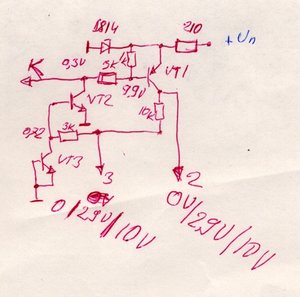 Д814
210
+ Uп
1K
0,3V
5K
VT1
K
9,9V
VT2
10K
0,72
3K
VT3
3
2
0/2,9V/10V
0V/2,9V/10V